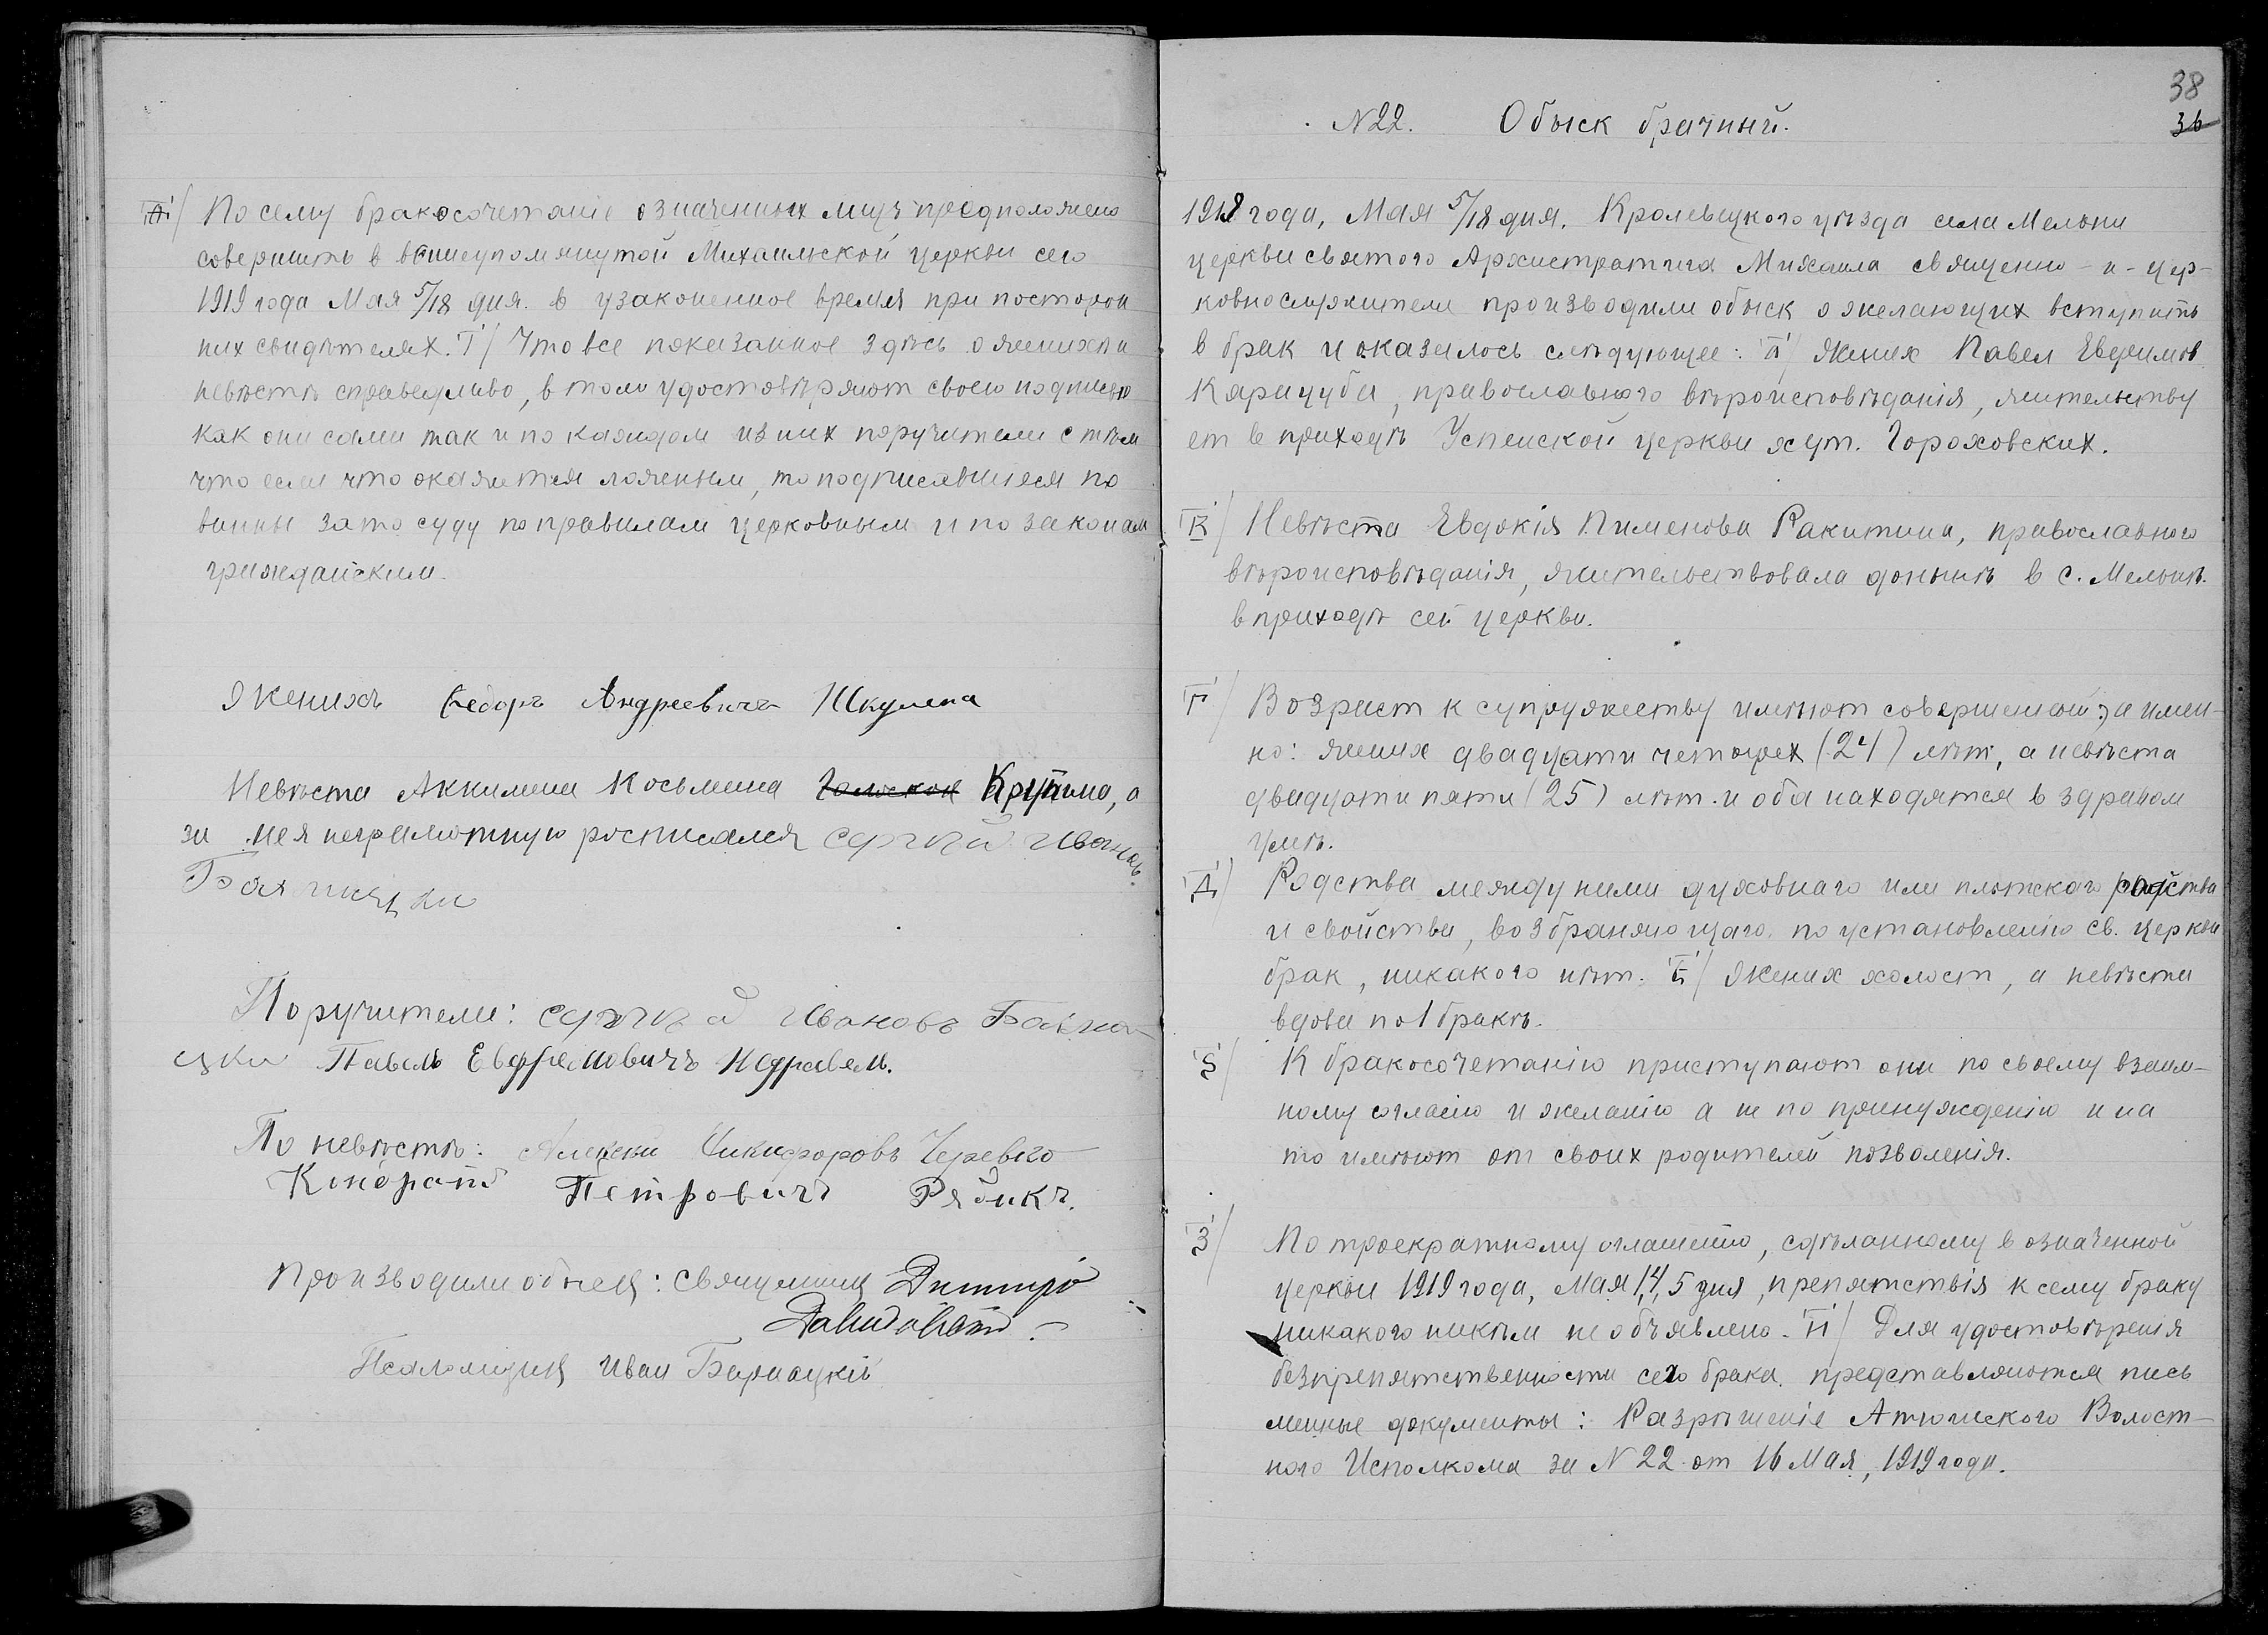 Посему бракосочетаніе означенных лиц предположено
совершить в вышеупомянутой Михаильской церкви сего
1919 года Мая 5/18 дня. в узаконенное время при посторон
них свидѣтелях. І/ Что все показанное здѣсь о женихѣ и
невѣстѣ справедливо, в том удостовѣряют своею подписью
как они сами так и по каждом из них поручители с тѣм
что если что окажется ложным, то подписавшіеся по
винны за то суду по правилам церковным и по законам
гражданским.
Женихъ Федоръ Андреевичъ Шкулепа
Невѣста Акилина Косьмина Крупина, а
за нея неграмотную росписался Сергѣй Ивановъ
Поручители: Сергѣй Ивановъ
Павелъ Евфремовичъ
По невѣстѣ: Алексѣй Никифоровъ Черевко
Кондратъ Петровичъ Рябикъ.
Производили обыск: Священник Димитрій
Псаломщик Иван Барнацкій
38
36
N 22. Обыск брачный.
1919 года, Мая 5/18 дня. Кролевецкого уѣзда села Мельни
церкви святого Архистратига Михаила священно-и-цер-
ковнослужители производили обыск о желающих вступить
в брак и оказалось слѣдующее: А/ Жених Павел Ефимов
Карацуба, православного вѣроисповѣданія, жительству
ет в приходѣ Успенской церкви хут. Гороховских.
В/ Невѣста Евдокія Пименова Ракитина, православного
вѣроисповѣданія, жительствовала донынѣ в с. Мельнѣ
в приходѣ сей церкви.
Г/ Возраст к супружеству имѣют совершенный, а имен-
но: жених двадцати четырех (24) лѣт, а невѣста
двадцати пяти (25) лѣт. и оба находятся в здравом
умѣ.
Д/ Родства между ними духовнаго или плотскаго родства
и свойства, возбраняющаго по установленію св. церкви
брак, никакого нѣт. Е/ Жених холост, а невѣста
вдова по 1 бракѣ.
Ѕ/ К бракосочетанію приступают они по своему взаим-
ному согласію и желанію а не по принужденію и на
то имѣют от своих родителей позволенія.
З/ По троекратному оглашенію, сдѣланному в означенной
церкви 1919 года, Мая 1, 4, 5 дня, препятствія к сему браку
никакого никѣм не объявлено. И/ Для удостовѣренія
безпрепятственности сего брака представляются пись
менные документы: Разрѣшеніе Атюшского Волост-
ного Исполкома за N 22 от 16 Мая, 1919 года.